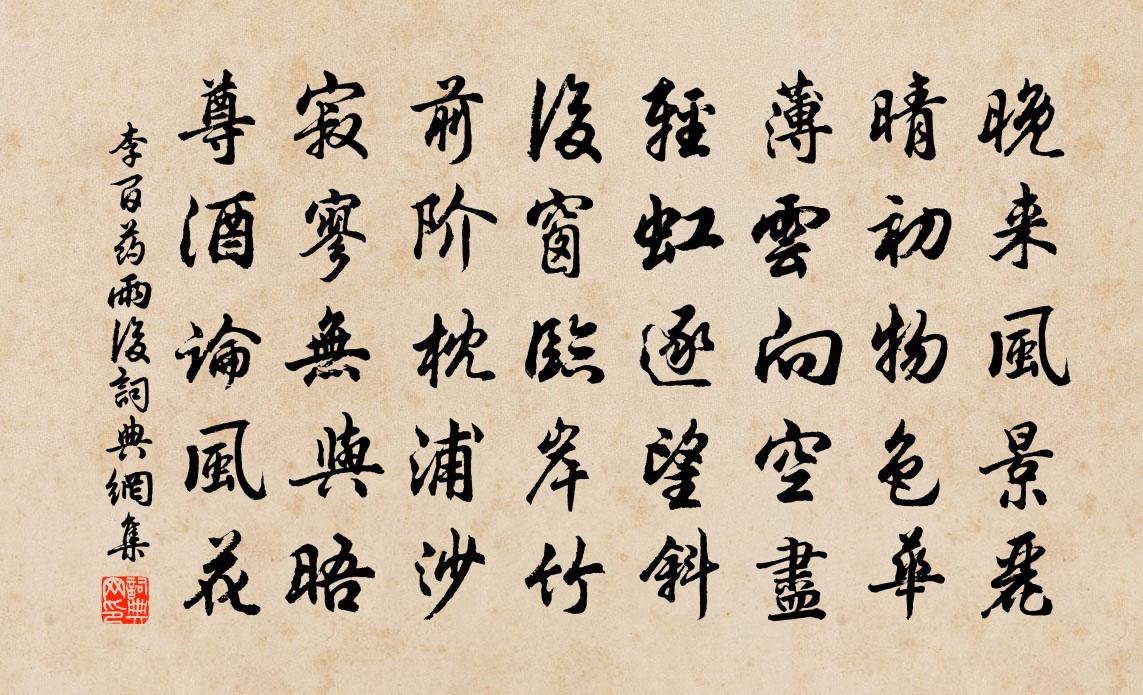 晚来風景麗
晴初物色華
薄雲向空盡
輕虹逐望斜
後窗臨岸竹
前阶枕浦沙
寂寥無與晤
尊酒論風花
李百药雨後詞典網集
詞典网印